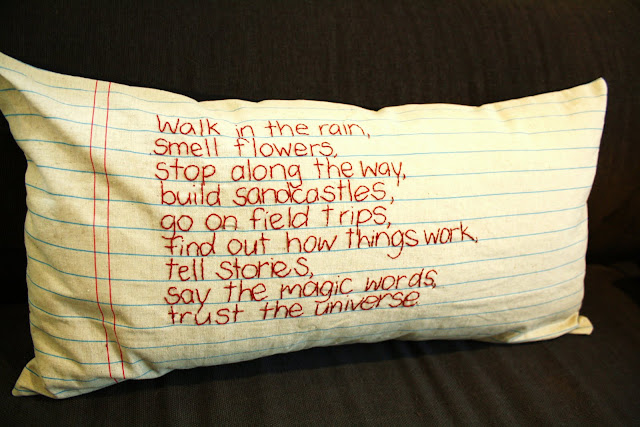 Walk in the rain,
smell flowers,
stop along the way,
build sandcastles,
go on field trips,
find out how things work,
tell stories,
say the magic words,
trust the universe.